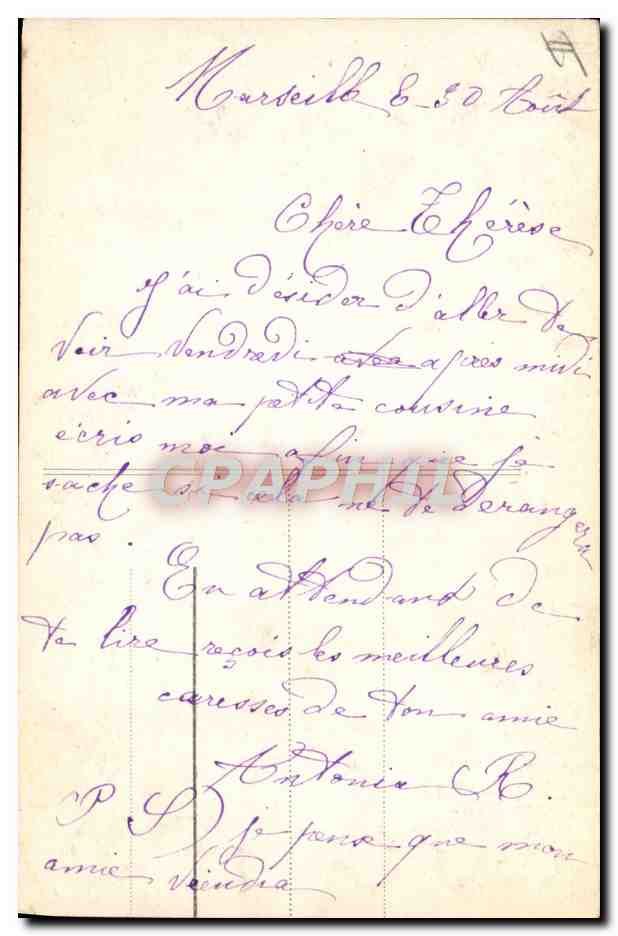 Marseille 30 Août
Chère Thérèse
J'ai désider d'aller te
voir vendredi avec après midi
avec ma petite cousine
écris moi afin que je
sache si cela ne te derangera
pas.
En attendant de
te lire reçois les meilleures
caresses de ton amie
Antonia R.
PS) je pense que mon
amie viendra
CPAPHIL